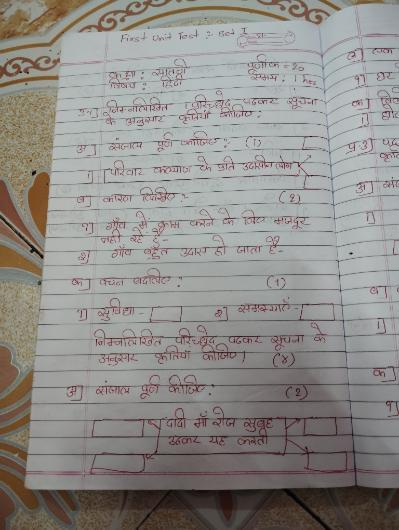 First Unit Test :- Set I
कक्षा : सातवीं पूर्णांक = 20
विषय : हिंदी समय : 1 hrs
निम्नलिखित परिच्छेद पढकर सूचना
के अनुसार कृतियाँ कीजिए :
अ] संजाल पूर्ण कीजिए : (1)
1] परिवार कल्याण के प्रति उदासीन लोग
ब] कारण लिखिए :- (2)
१] गाँव में काम करने के लिए मजदूर
नही रहे है -
२] गाँव बहुत उदास हो जाता है -
क] वचन बदलिए : (1)
१] सुविधा - २] समस्याएँ -
निम्नलिखित परिच्छेद पढकर सूचना के
अनुसार कृतियाँ कीजिए । (४)
अ] संजाल पूर्ण कीजिए : (2)
दादी माँ रोज सुबह
उठकर यह करती